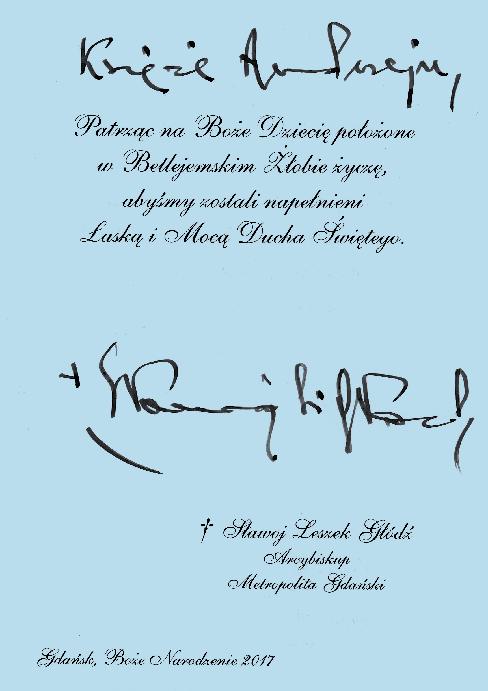 Księże Andrzeju,
Patrząc na Boże Dziecię położone
w Betlejemskim Żłobie życzę,
abyśmy zostali napełnieni
Łaską i Mocą Ducha Świętego.
+ Sławoj L. Głódź
† Sławoj Leszek Głódź
Arcybiskup
Metropolita Gdański
Gdańsk, Boże Narodzenie 2017